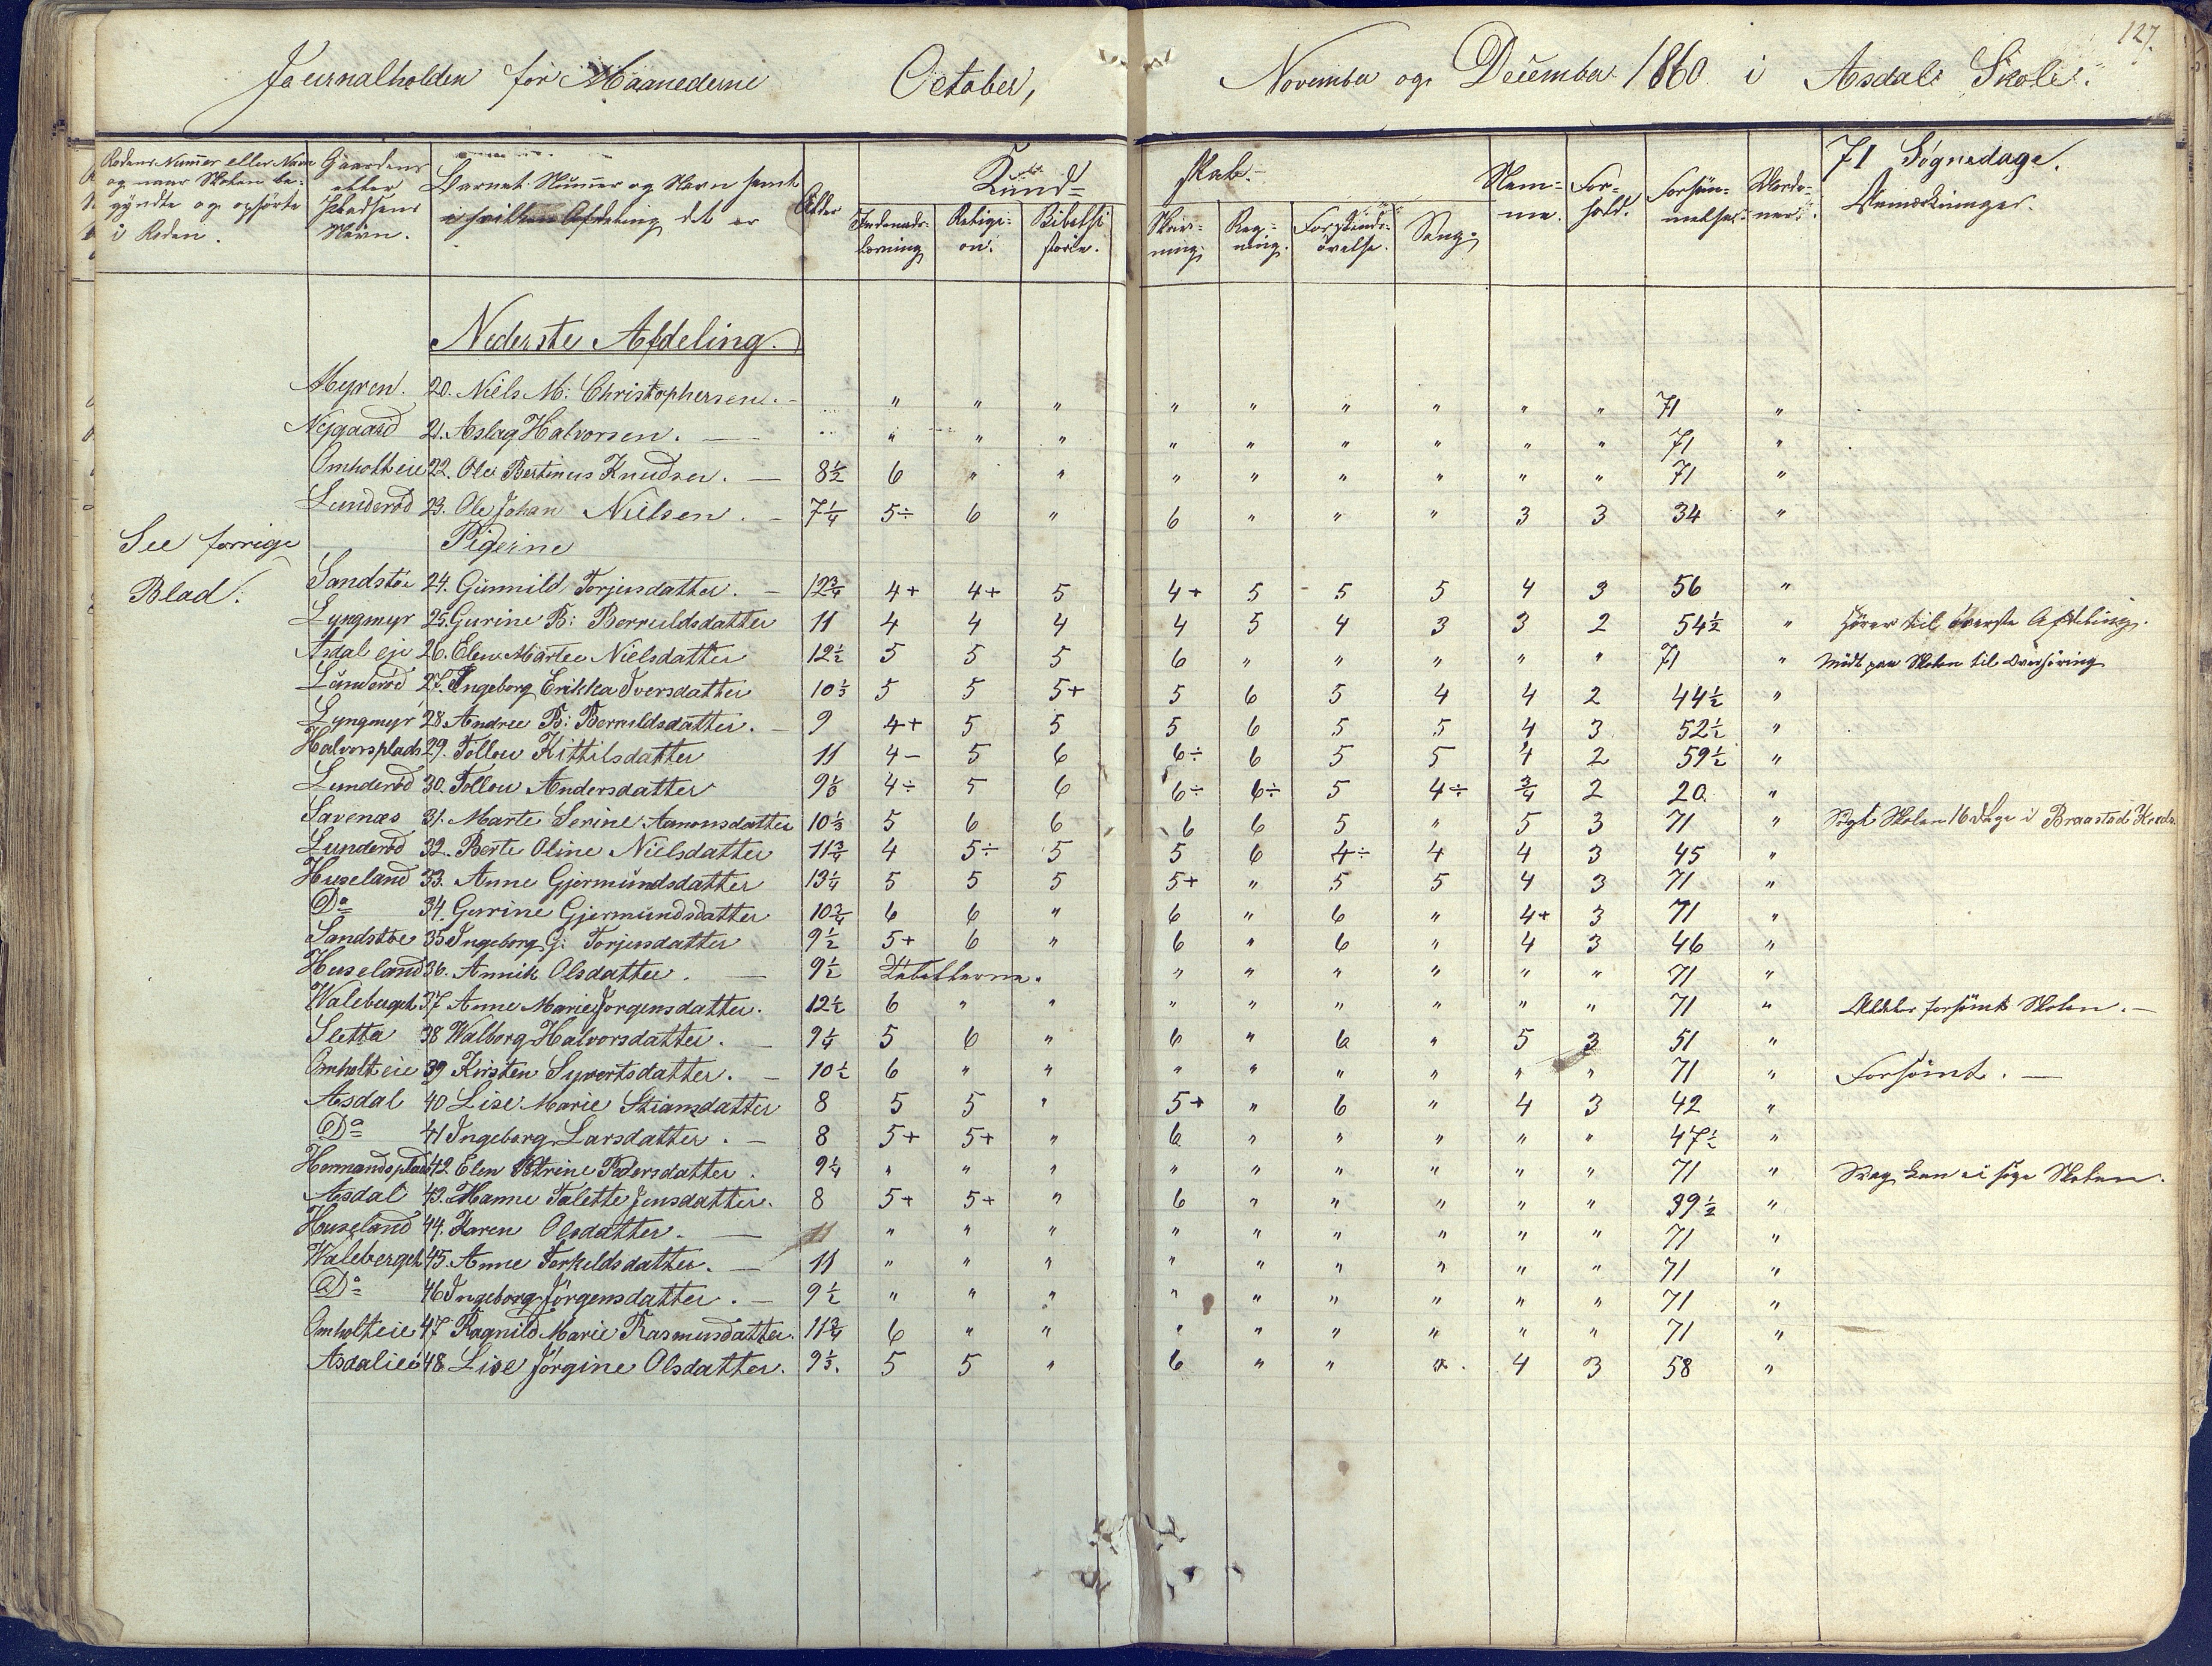 127.
Journalholden for Maanederne October, November og December 1860 i Asdals Skole.
Rodens Numer eller Navn og naar Skolen begyndte og ophørte i Roden.
Gaardens eller Pladsens Navn.
Barnets Numer og Navn samt i hvilken Afdeling det er
Alder
Kundskab.
Indenadslæsning
Religion.
Bibelhistorie.
Skrivning.
Regning.
Forstandsövelse.
Sang.
Nemme.
Forhold.
Forsömmelser.
71 Sögnedage.
Anmærkninger.
Nederste Afdeling.
Myren. 20. Niels M: Christophersen. " " " " " " " " " 71 "
Nygaard 21. Aslag Halvorsen. " " " " " " " " " 71 "
Omholteie 22. Ole Bertinus Knudsen. 8½ 6 " " " " " " " " 71 "
Lunderød 23. Ole Johan Nielsen. 7¼ 5÷ 6 " 6 " " " 3 3 34 "
See forrige Blad.
Pigerne
Sandstöe 24. Gunnild Torjusdatter. 12¾ 4+ 4+ 5 4+ 5 5 5 4 3 56 "
Lyngmyr 25. Gurine B: Berruldsdatter 11 4 4 4 4 5 4 3 3 2 54½ " hörer til överste Afdeling.
Asdal eje 26. Elen Marte Nielsdatter 12½ 5 5 5 6 " " " " " 71 " Mödt paa Skolen til Overhöring
Lunderød 27. Ingeborg Erikka Iversdatter 10⅓ 5 5 5+ 5 6 5 4 4 2 44½ "
Lyngmyr 28. Andree B: Berruldsdatter. 9 4+ 5 5 5 6 5 5 4 3 52½ "
Halvorsplads 29. Tollou Kittilsdatter 11 4- 5 6 6÷ 6 5 5 4 2 59½ "
Lunderød 30. Tollou Andersdatter 9⅓ 4÷ 5 6 6÷ 6÷ 5 4÷ ¾ 2 20. "
Savenæs 31. Marte Serine Amonsdatter 10⅓ 5 6 6 6 6 5 " 5 3 71 " Sögt Skolen 16 Dage i Braastad Kreds.
Lunderød 32. Berte Oline Nielsdatter 11¾ 4 5÷ 5 5 6 4÷ 4 4 3 45 "
Huseland 33. Anne Gjermundsdatter 13¼ 5 5 5 5+ " 5 5 4 3 71 "
Do 34. Gurine Gjermundsdatter 10¾ 6 6 " 6 " 6 " 4+ 3 71 "
Sandstöe 35 Ingeborg G: Torjusdatter 9½ 5+ 6 " 6 " 6 " 4 3 46 "
Huseland 36. Annik Olsdatter. 9½ Tabellerne. " " " " " " 71 "
Waleberget 37 Anne Marie Jorgensdatter. 12½ 6 " " " " " " " " 71 " forsömt Skolen.
Sletta 38 Walborg Halvorsdatter. 9¼ 5 6 " 6 " 6 " 5 3 51 "
Omholteie 39 Kirsten Syvertsdatter. 10½ 6 " " " " " " " " 71 " Forsömt.
Asdal 40 Lise Marie Stiansdatter 8 5 5 " 5+ " 6 " 4 3 42 "
Do 41 Ingeborg Larsdatter. 8 5+ 5+ " 6 " " " " " 47½ "
Hermandsplads 42. Elen Petrine Pedersdatter. 9¼ " " " " " " " " " 71 " Svag, kan ei söge Skolen.
Asdal 43. Hanne Talette Jensdatter. 8 5+ 5+ " 6 " " " " " 39½ "
Huseland 44. Karen Olsdatter. 11 " " " " " " " " " 71 "
Waleberget 45. Anne Torkeldsdatter. 11 " " " " " " " " " 71 "
Do 46 Ingeborg Jörgensdatter. 9½ " " " " " " " " " 71 "
Omholteie 47 Ragnild Marie Rasmusdatter. 11¾ 6 " " " " " " " " 71 "
Asdaleie 48. Lise Jörgine Olsdatter. 9⅓. 5 5 " 6 " " " 4 3 58 "